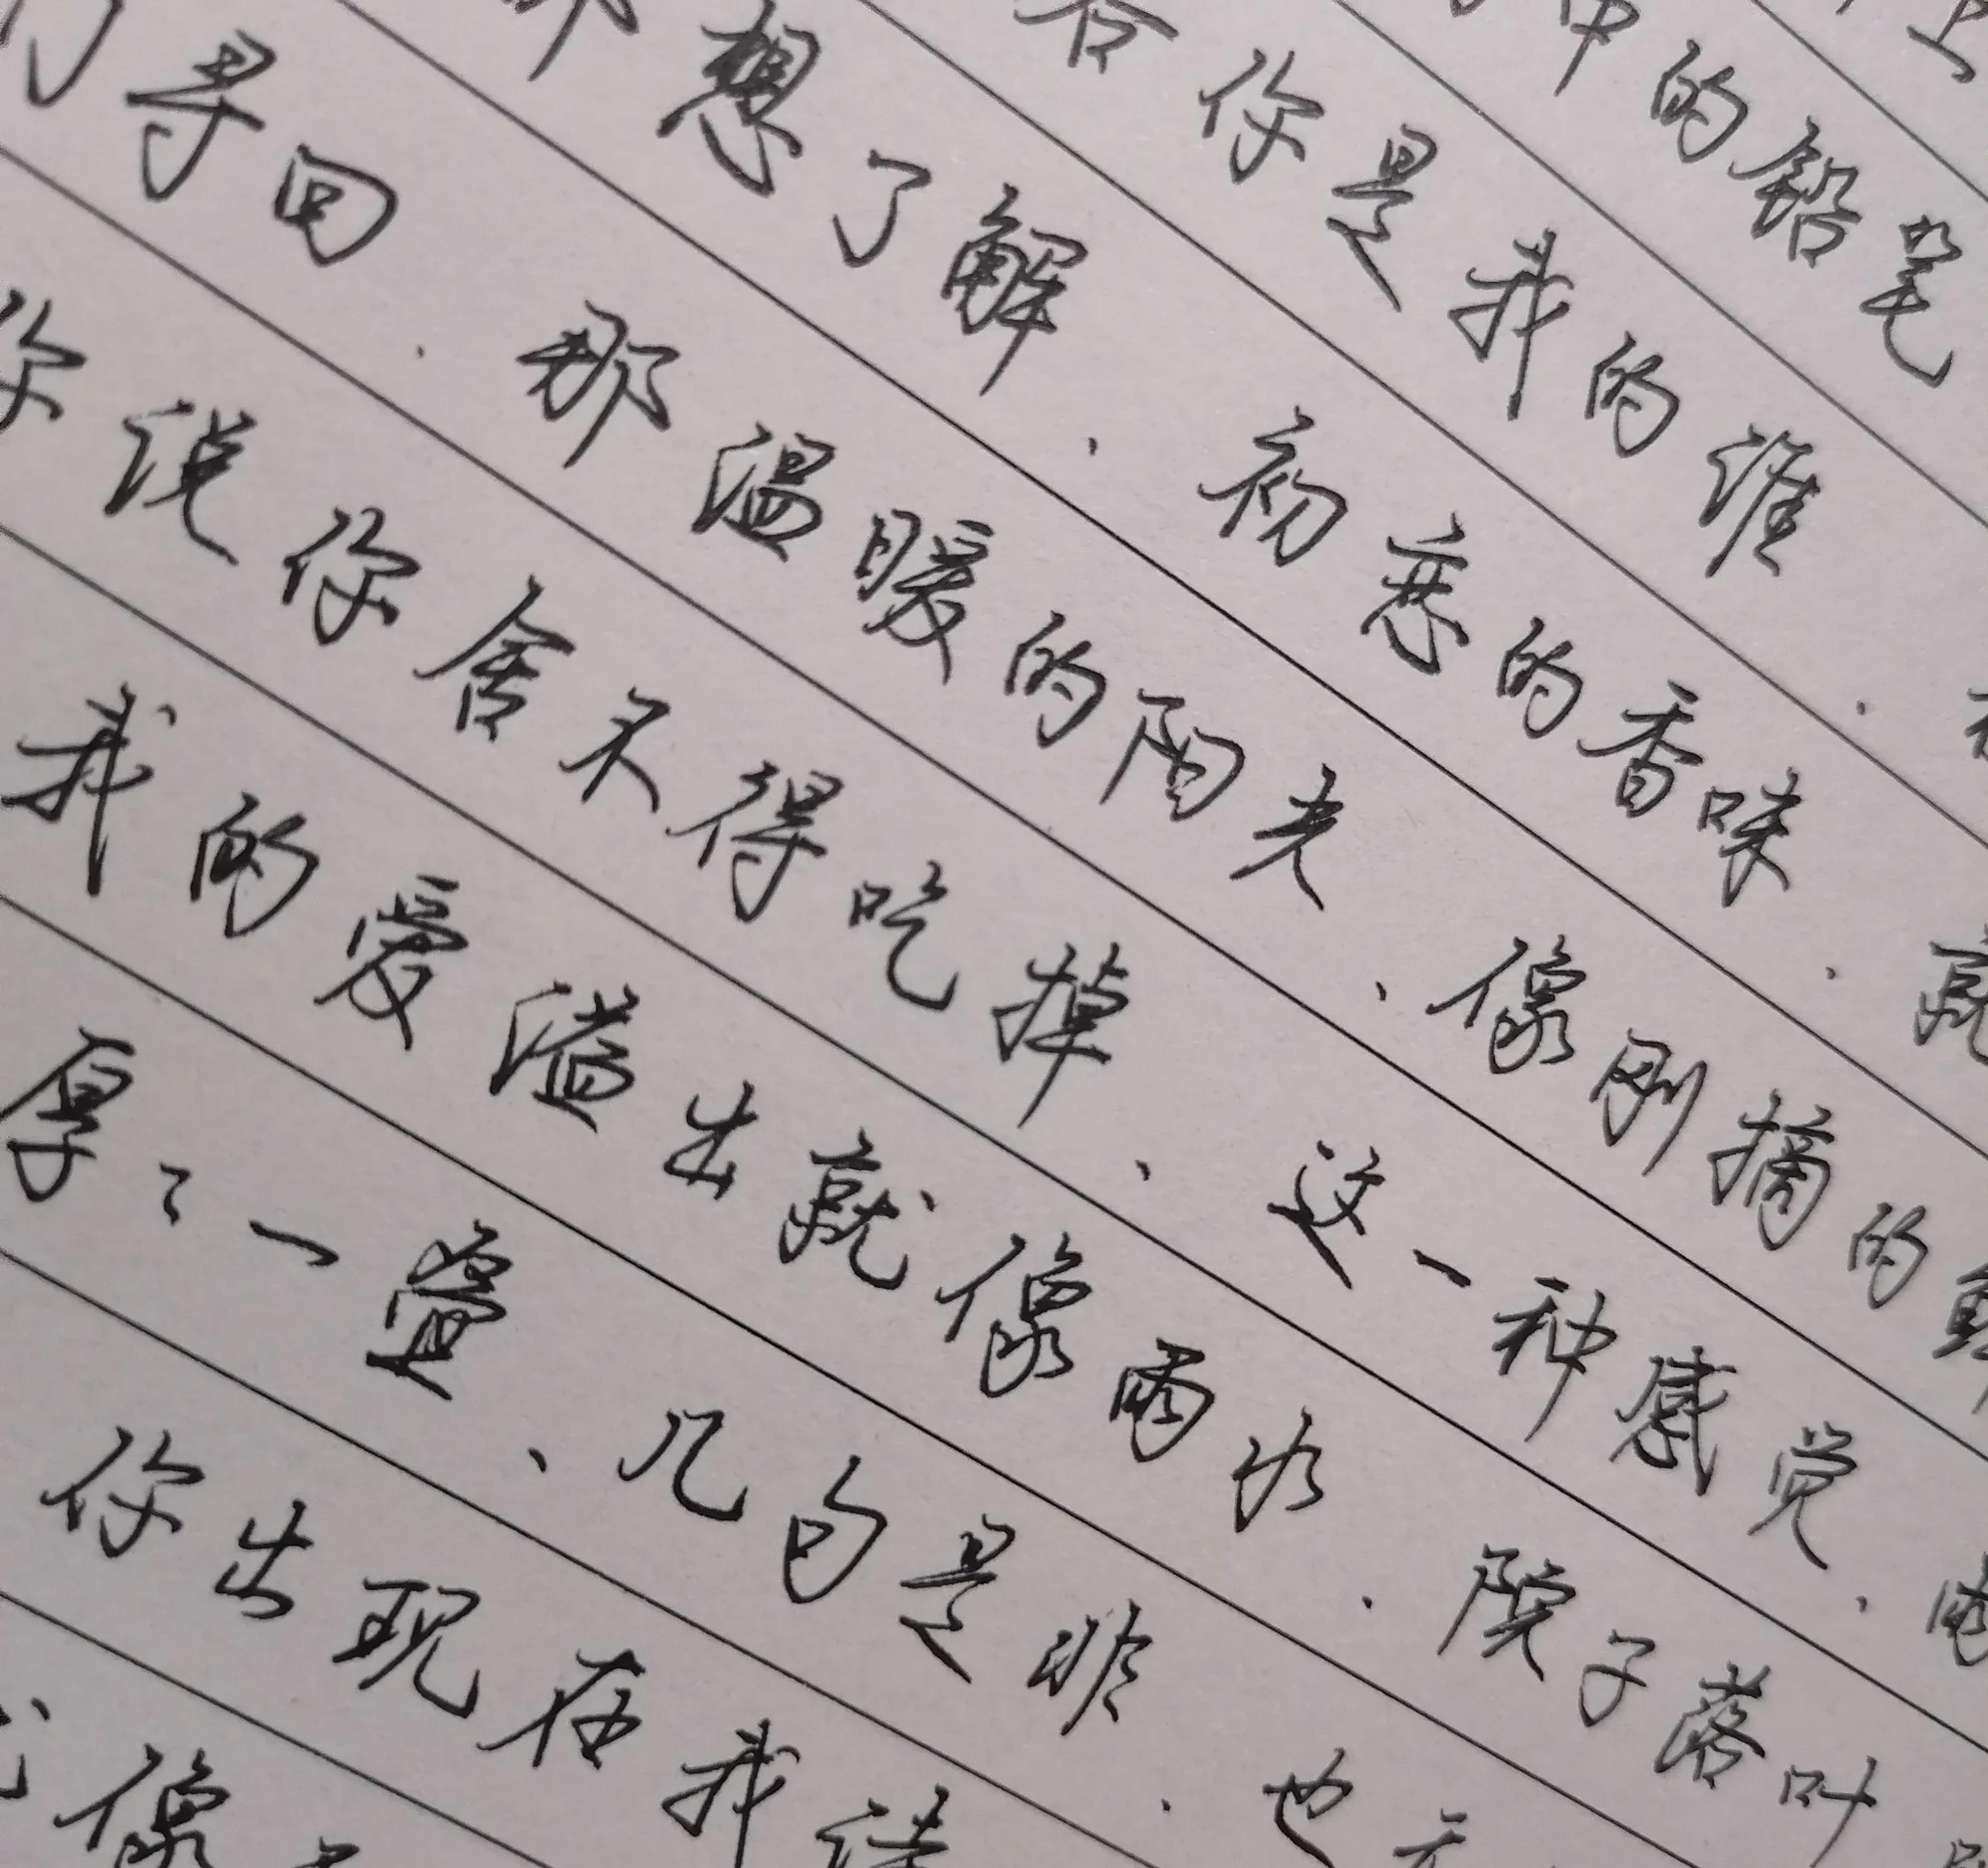 上
中的铅笔
你是我的谁、
想了解、初恋的香味、就
寻回、那温暖的阳光、像刚摘的鲜
你说你舍不得吃掉、这一种感觉、雨
我的爱溢出就像雨水、院子落叶
厚々一叠、几句是非、也无
你出现在我诗
像